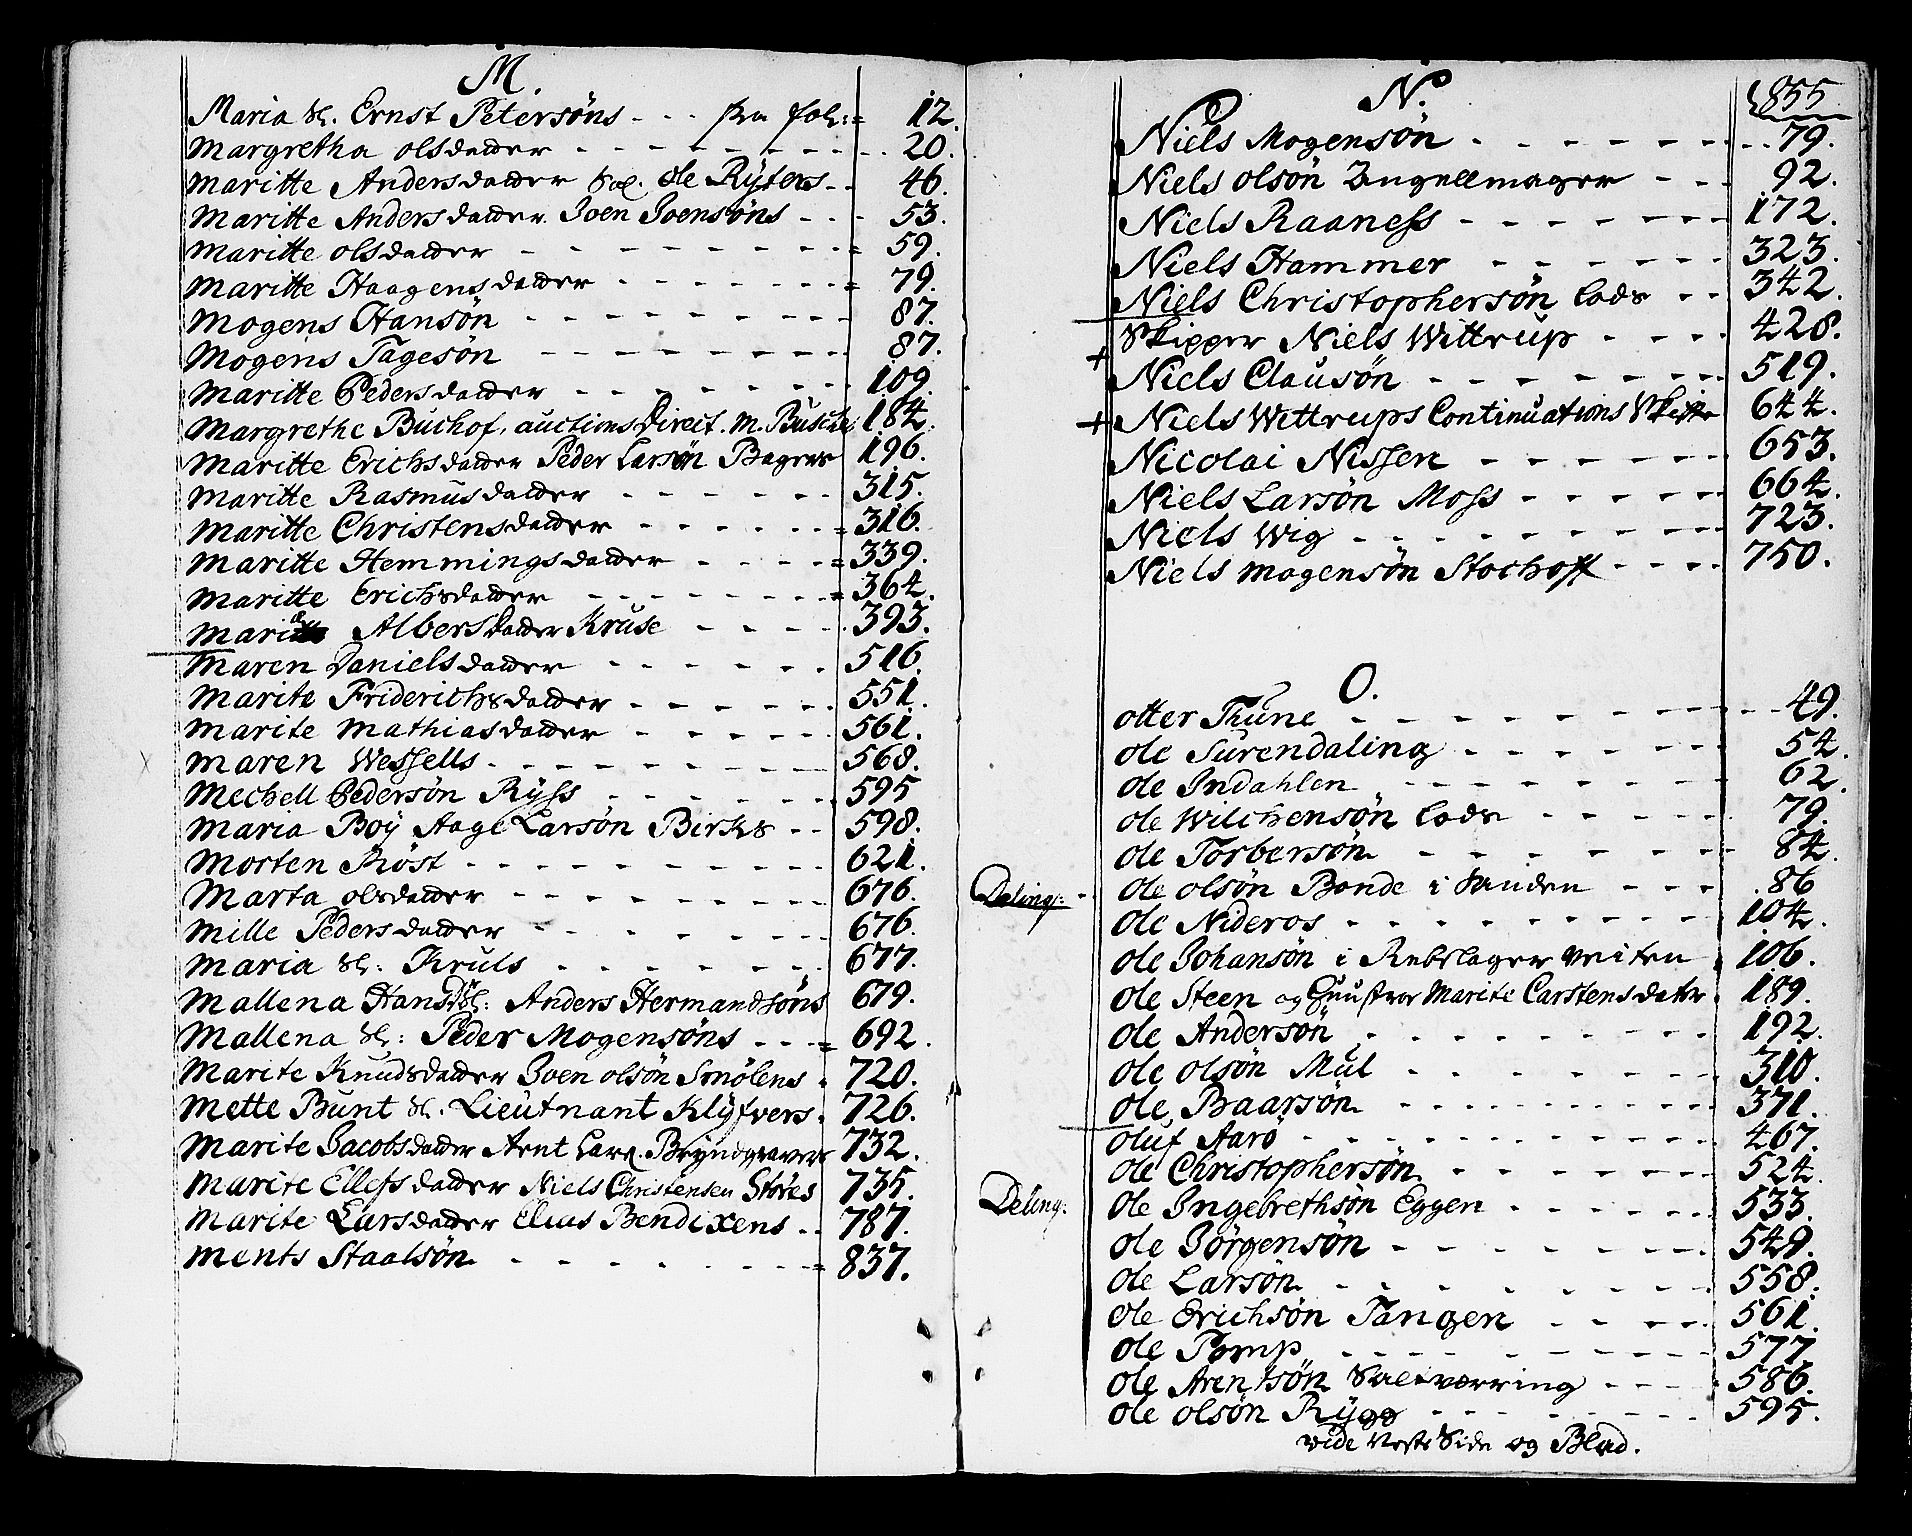 M.
Maria Sl. Ernst Petersöns - - - paa fol: 12.
Margretha olsdatter 20.
Maritte Andersdatter Sal. ole Rÿters 46.
Maritte Andersdatter Joen Joensöns 53.
Maritte olsdatter 59.
Maritte Haagensdatter 79.
Mogens Hansön 87.
Mogens Tagesön 87.
Maritte Pedersdatter 109.
Margrethe Buchof, auctions Direct. M. Busch 184.
Maritte Erichsdatter Peder Larsön Bagers 196.
Maritte Rasmusdatter 315.
Maritte Christensdatter 316.
Maritte Hemmingsdatter 339.
Maritte Erichsdatter 364.
Maria Albersdatter Kruse 393.
Maren Danielsdatter 516.
Marite Friderichsdatter 551.
Marite Mathiasdatter 561.
Maren Wessells 568.
Mechell Pedersön Rÿss 595
Maria Boÿ Aage Larsön Birks 598.
Morten Röst 621.
Marta olsdatter 676.
Mille Pedersdatter 676.
Maria Sl: Kruls 677.
Mallena Hansd Sl: Anders Hermandsöns 679.
Mallena Sl: Peder Mogensöns 692.
Marite Knudsdatter Joen olsön Smölens 720.
Mette Bunt Sl. Lieutnant Klÿfvers 726.
Marite Jacobsdatter Arnt Lars. Brÿndgravers 732.
Marite Ellefsdatter Niels Christensen Störes 735.
Marite Larsdatter Elias Bendixens 787.
Ments Staalsön 837.
N.
855
Niels Mogensön 79.
Niels olsön Zugellmager 92.
Niels Raaness 172.
Niels Hammer 323.
Niels Christophersön Lods 342.
Skipper Niels Wittrup 428.
+ Niels Clausön 519.
+ Niels Wittrups Continuations Skifte 644.
Nicolai Nissen 653.
Niels Larsön Moss 664.
Niels Wig 723.
Niels Mogensön Stochoff 750.
O.
otter Thune 49.
ole Surendaling 54.
ole Indahlen 62.
ole Wilchensön Lods 79.
ole Torbersön 84.
ole olsön Bonde i Sanden 86
Deling: ole Nideros 104.
ole Johansön i Rebslager Veiten 106.
ole Steen og Huustroe Marite Carstens datter 189.
ole Andersön 192.
ole olsön Mul 310.
ole Baarsön 371.
oluf Aarö 467.
ole Christophersön 524.
Deling: ole Ingebrethsön Eggen 533.
ole Jörgensön 549.
ole Larsön 558.
ole Erichsön Tangen 561.
ole Pomp 577
ole Arentsön 586.
ole olsön Rÿgg 595.
vide Neste Side og Blad.